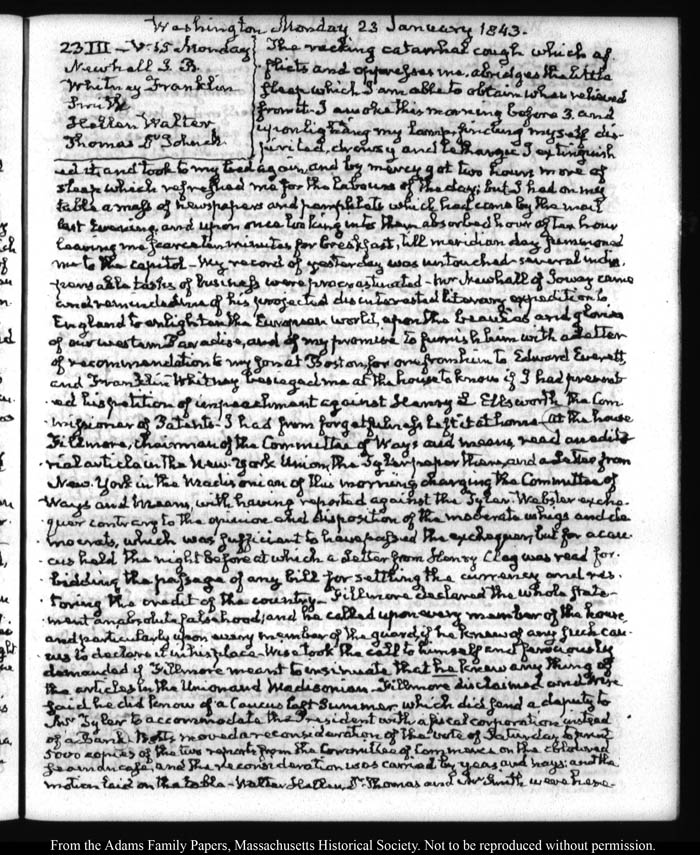 Washington Monday 23 January 1843.
23 III – V:15 Monday
Newhall J. B.
Whitney Franklin
Smith
Hellen Walter
Thomas Dr
The racking catarrhal cough which af-
flicts and oppresses me, abridges the little
sleep which I am able to obtain when relieved
from it. I awoke this morning before 3. and
upon lighting my lamp, finding myself dis-
pirited, drowsy and lethargic I extinguish
ed it, and took to my bed again, and by mercy got two hours more of
sleep which refreshed me for the labours of the day; but I had on my
table a mass of newspapers and pamphlets which had come by the mail
last Evening, and upon once looking into them absorbed hour after hour
leaving me scarce ten minutes for breakfast, till meridian day summoned
me to the capitol – My record of yesterday was untouched – several indis-
pensable tasks of business were procrastinated – Mr Newhall of Ioway came
and reminded me of his projected disinterested literary expedition to
England to enlighten the European world, upon the beauties and glories
of our western Paradise, and of my promise to furnish him with a Letter
of recommendation to my son at Boston, for one from him to Edward Everett,
and Franklin Whitney besieged me at the house to know if I had present
ed his petition of impeachment against Henry L Ellsworth the Com-
missioner of Patents – I had from forgetfulness left it at home – At the house
Fillmore, chairman of the Committee of Ways and means, read an edito
rial article in the New-York Union, the Tyler paper there, and a Letter from
New-York in the Madisonian of this morning charging the Committee of
Ways and Means, with having reported against the Tyler-Webster exche-
quer contrary to the opinion and disposition of the moderate whigs and de
mocrats, which was sufficient to have passed the exchequer, but for a cau-
cus held the night before at which a Letter from Henry Clay was read for-
bidding the passage of any bill for settling the currency and res-
toring the credit of the country – Fillmore declared the whole state-
ment an absolute falsehood; and he called upon every member of the house,
and particularly upon every member of the guard, if he knew of any such cau-
cus to declare it in his place – Wise took the call to himself and ferociously
demanded if Fillmore meant to insinuate that he knew any thing of
the articles in the Union and Madisonian – Fillmore disclaimed and Wise
said he did know of a Caucus last Summer which did send a deputy to
Mr Tyler to accommodate the President with a fiscal corporation instead
of a Bank. Botts moved a reconsideration of the vote of Saturday to print
5000 copies of the two reports from the Committee of Commerce on the coloured
seamen case, and the reconsideration was carried by yeas and nays: and the
motion laid on the table – Walter Hellen, Dr Thomas and Mr Smith were here
From the Adams Family Papers, Massachusetts Historical Society. Not to be reproduced without permission.